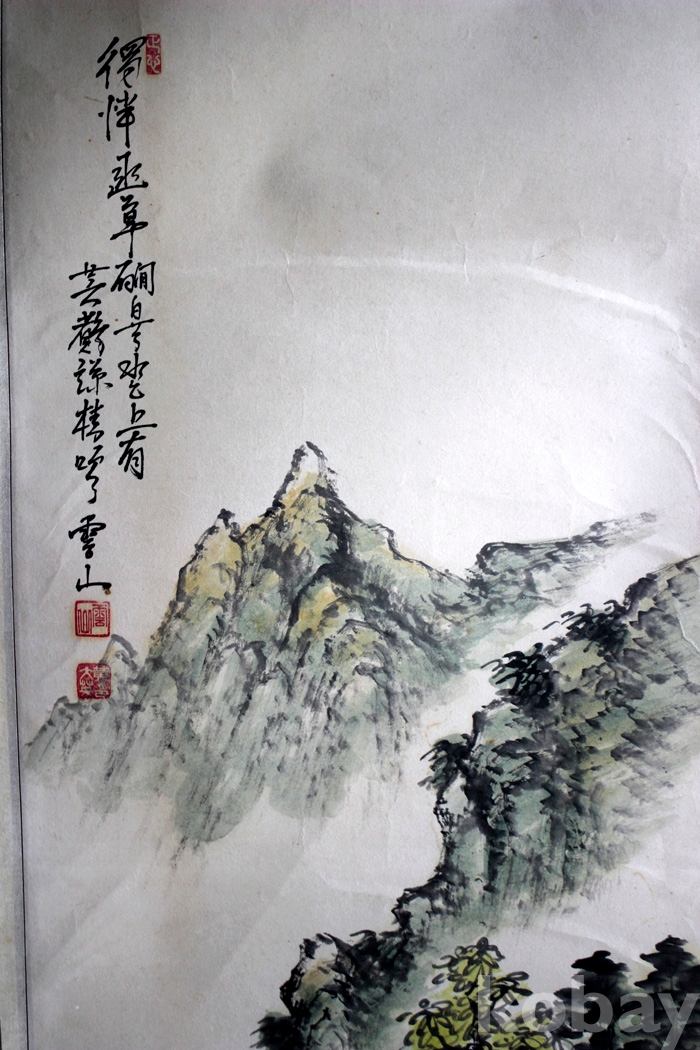 獨憐幽草礀邊生上有
黃鸝深樹鳴 雲山
kobay